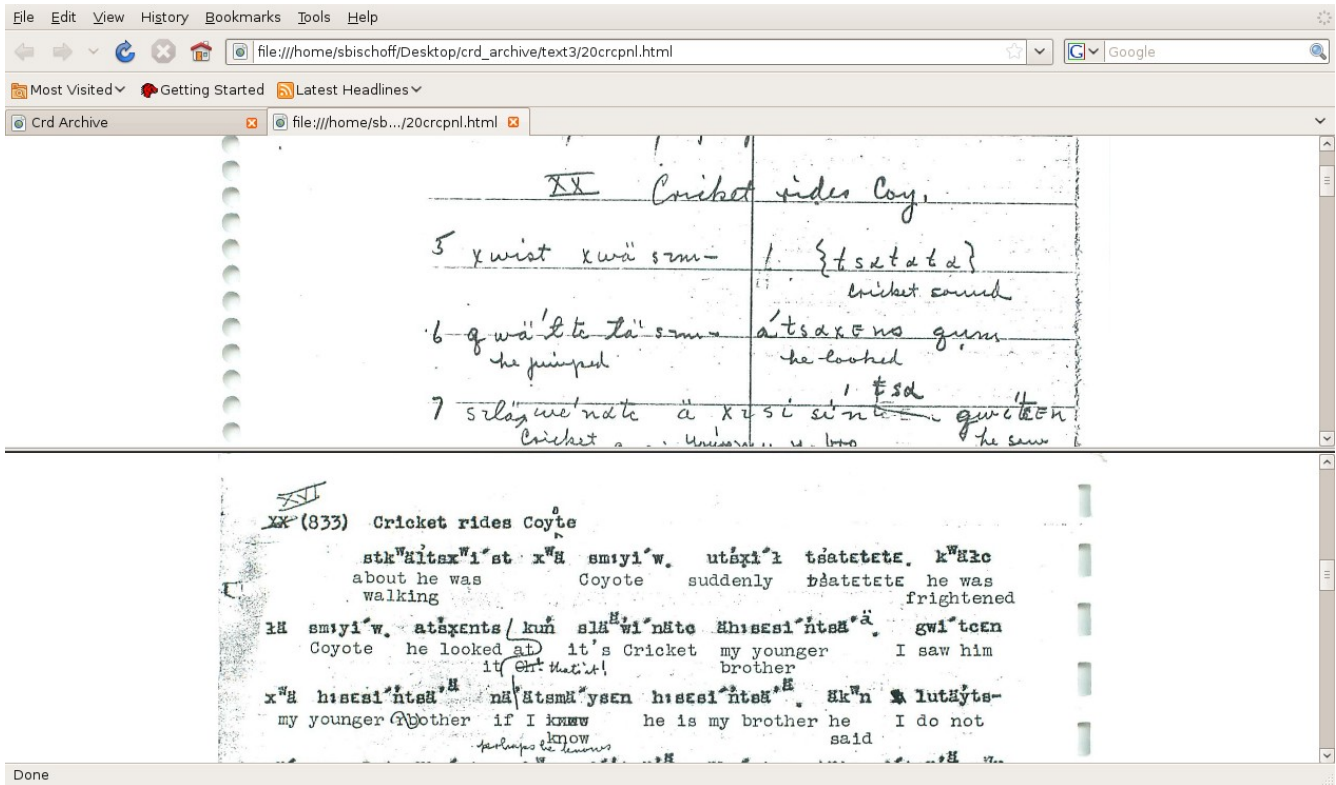 File Edit View History Bookmarks Tools Help
file:///home/sbischoff/Desktop/crd_archive/text3/20crcpnl.html
G Google
Most Visited Getting Started Latest Headlines
Crd Archive file:///home/sb.../20crcpnl.html
XX Cricket rides Coy.
5 xwist xwä smm- 1. {tsatata}
Cricket sound
6 qwä'ltc lä smm- a'tsaxEns qum
he jumped he looked
1. tsa
7
Cricket he saw
XVI
XX (833) Cricket rides Coyote
stkʷäłtsxʷi´st xʷä smıyi´w. utsxi´ł tsatɛtɛtɛ. kʷäłc
about he was Coyote suddenly tsatɛtɛtɛ he was
walking frightened
łä smıyi´w. atsxɛnts / kuń släᵃ̈wi´nätc ähısɛsi´ńtsä´ä. gwi´tcɛn
Coyote he looked at it's Cricket my younger I saw him
it Oh! that's it! brother
xʷä hısɛsi´ńtsä´ä nä ätsmä´ysɛn hısɛsi´ńtsä´ä. äkʷn lutäyts-
my younger brother if I know he is my brother he I do not
know said
perhaps he knows
Done